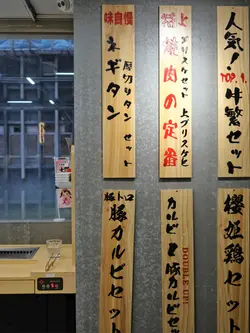 味自慢
厚切りタン セット
ネギタン
特上
ブリスケセット 上ブリスケと
焼肉の定番
人気!
TOP.1
牛繁セット
豚トロ
豚カルビセット
DOUBLE UP!
カルビと豚カルビセット
櫻姫鶏セット